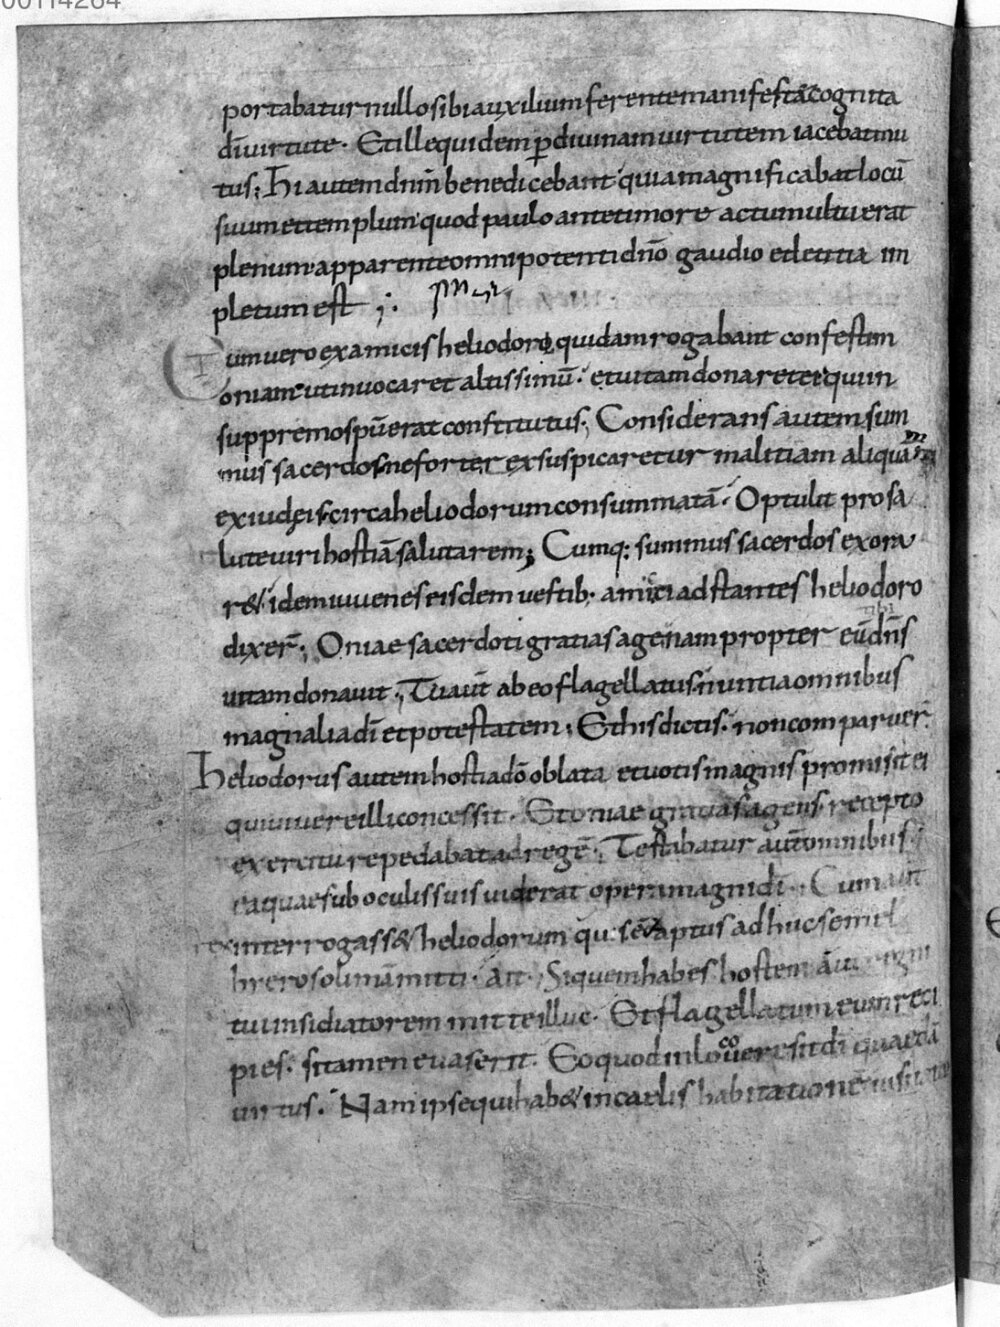 00114264
portabatur nullo sibi auxilium ferente manifesta cognita
dī uirtute. Et ille quidem p diuinam uirtutem iacebat mu
tus; Hi autem dnm̄ benedicebant quia magnificabat locū
suum et templum quod paulo ante timore ac tumultu erat
plenum apparente omnipotenti dnō gaudio et letitia im
pletum est ;.
Tum uero ex amicis heliodori quidam rogabant confestim
oniam ut inuocaret altissimū. et uitam donaret ei qui in
suppremo spū erat constitutus; Considerans autem sum
mus sacerdos ne forte rex suspicaretur malitiam aliquam
ex iudęis circa heliodorum consummatā. Optulit pro sa
lute uiri hostiā salutarem; Cumq; summus sacerdos exora
r& idem iuuenes eisdem uestib; amicti adstantes heliodoro
dixer̄; Oniae sacerdoti gratias age nam propter eū dn̄s tibi
uitam donauit; Tu aut̄ ab eo flagellatus nuntia omnibus
magnalia dī et potestatem; Et his dictis. non comparuer̄
Heliodorus autem hostia dō oblata et uotis magnis p̄romisit ei
qui uiuere illi concessit. Et oniae gratias agens. recepto
exercitu repedabat ad regē; Testabatur aut̄ omnibus.
ea quae sub oculis suis uiderat opera magni dī. Cum aut
rex interrogass& heliodorum quis ess& aptus adhuc semel
hierosolimā mitti. ait. Si quem habes hostem aut regni
tui insidiatorem mitte illuc. Et flagellatum eum reci
pies. si tamen euaserit. Eo quod in loco uere sit dī quaedā
uirtus. Nam ipse qui hab& in caelis habitationē uisitator